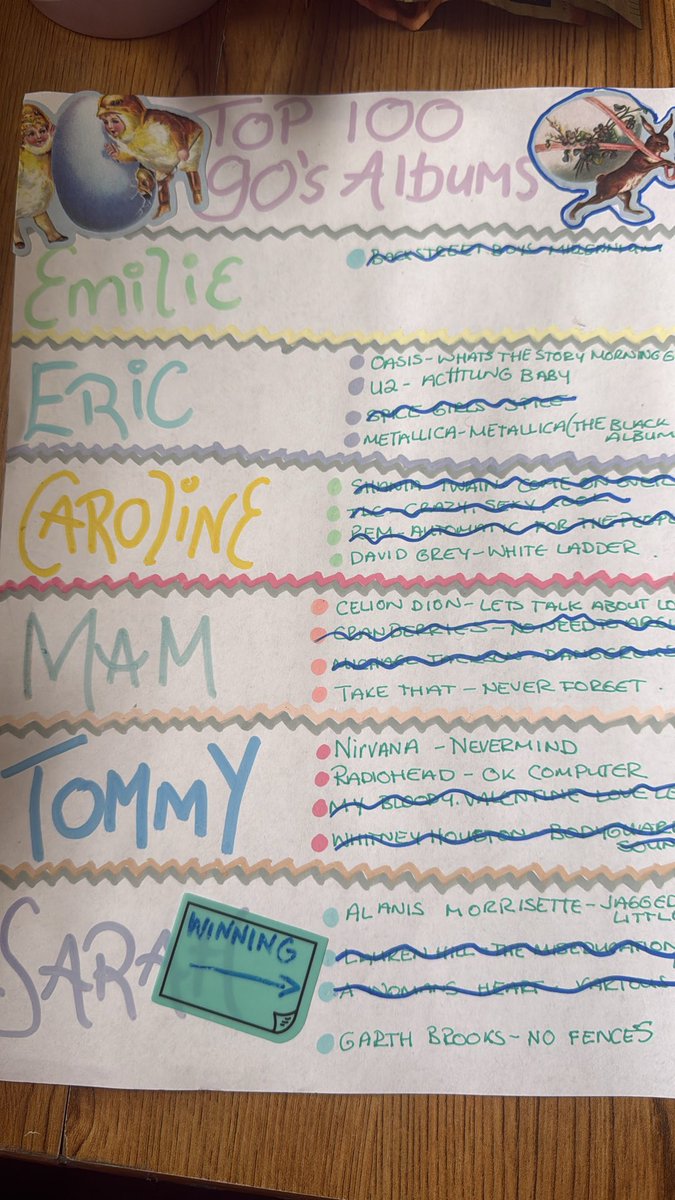 TOP 100
90's ALbUMS
EmiliE
BACKSTREET BOYS MILENNIUM
ERIC
OASIS-WHATS THE STORY MORNING G
U2- ACHTUNG BABY
SPICE GIRLS SPICE
METALLICA-METALLICA(THE BLACK
ALBUM
CAROlINE
SHANIA TWAIN COME ON OVER
TLC CRAZY SEXY COOL
REM. AUTOMATIC FOR THE PEOPL
DAVID GREY-WHITE LADDER .
MAM
CELION DION- LETS TALK ABOUT LO
CRANBERRIES - NO NEED TO ARGU
MICHAEL JACKSON DANGEROUS
TAKE THAT - NEVER FORGET .
TOMMY
NIRVANA - NEVERMIND
RADIOHEAD - OK COMPUTER
MY BLOODY. VALENTINE LOVE LE
WHITNEY HOUSTON BODYGUAR
SOUN
SARAH
WINNING
ALANIS MORRISETTE-JAGGED
LITTL
LAUREN HILL THE MISEDUCATION
A WOMANS HEART- VARIOUS
GARTH BROOKS- NO FENCES